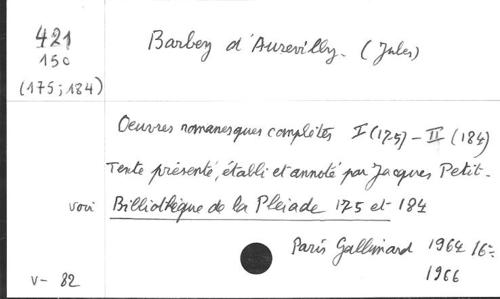 421
150
(175; 184)
Barbey d'Aurevilly. (Jules)
Oeuvres romanesques complètes I (175) - II (184)
Texte présenté, établi et annoté par Jacques Petit.
voir Bibliothèque de la Pléiade 175 et 184
Paris Gallimard 1964 16°
1966
V- 82